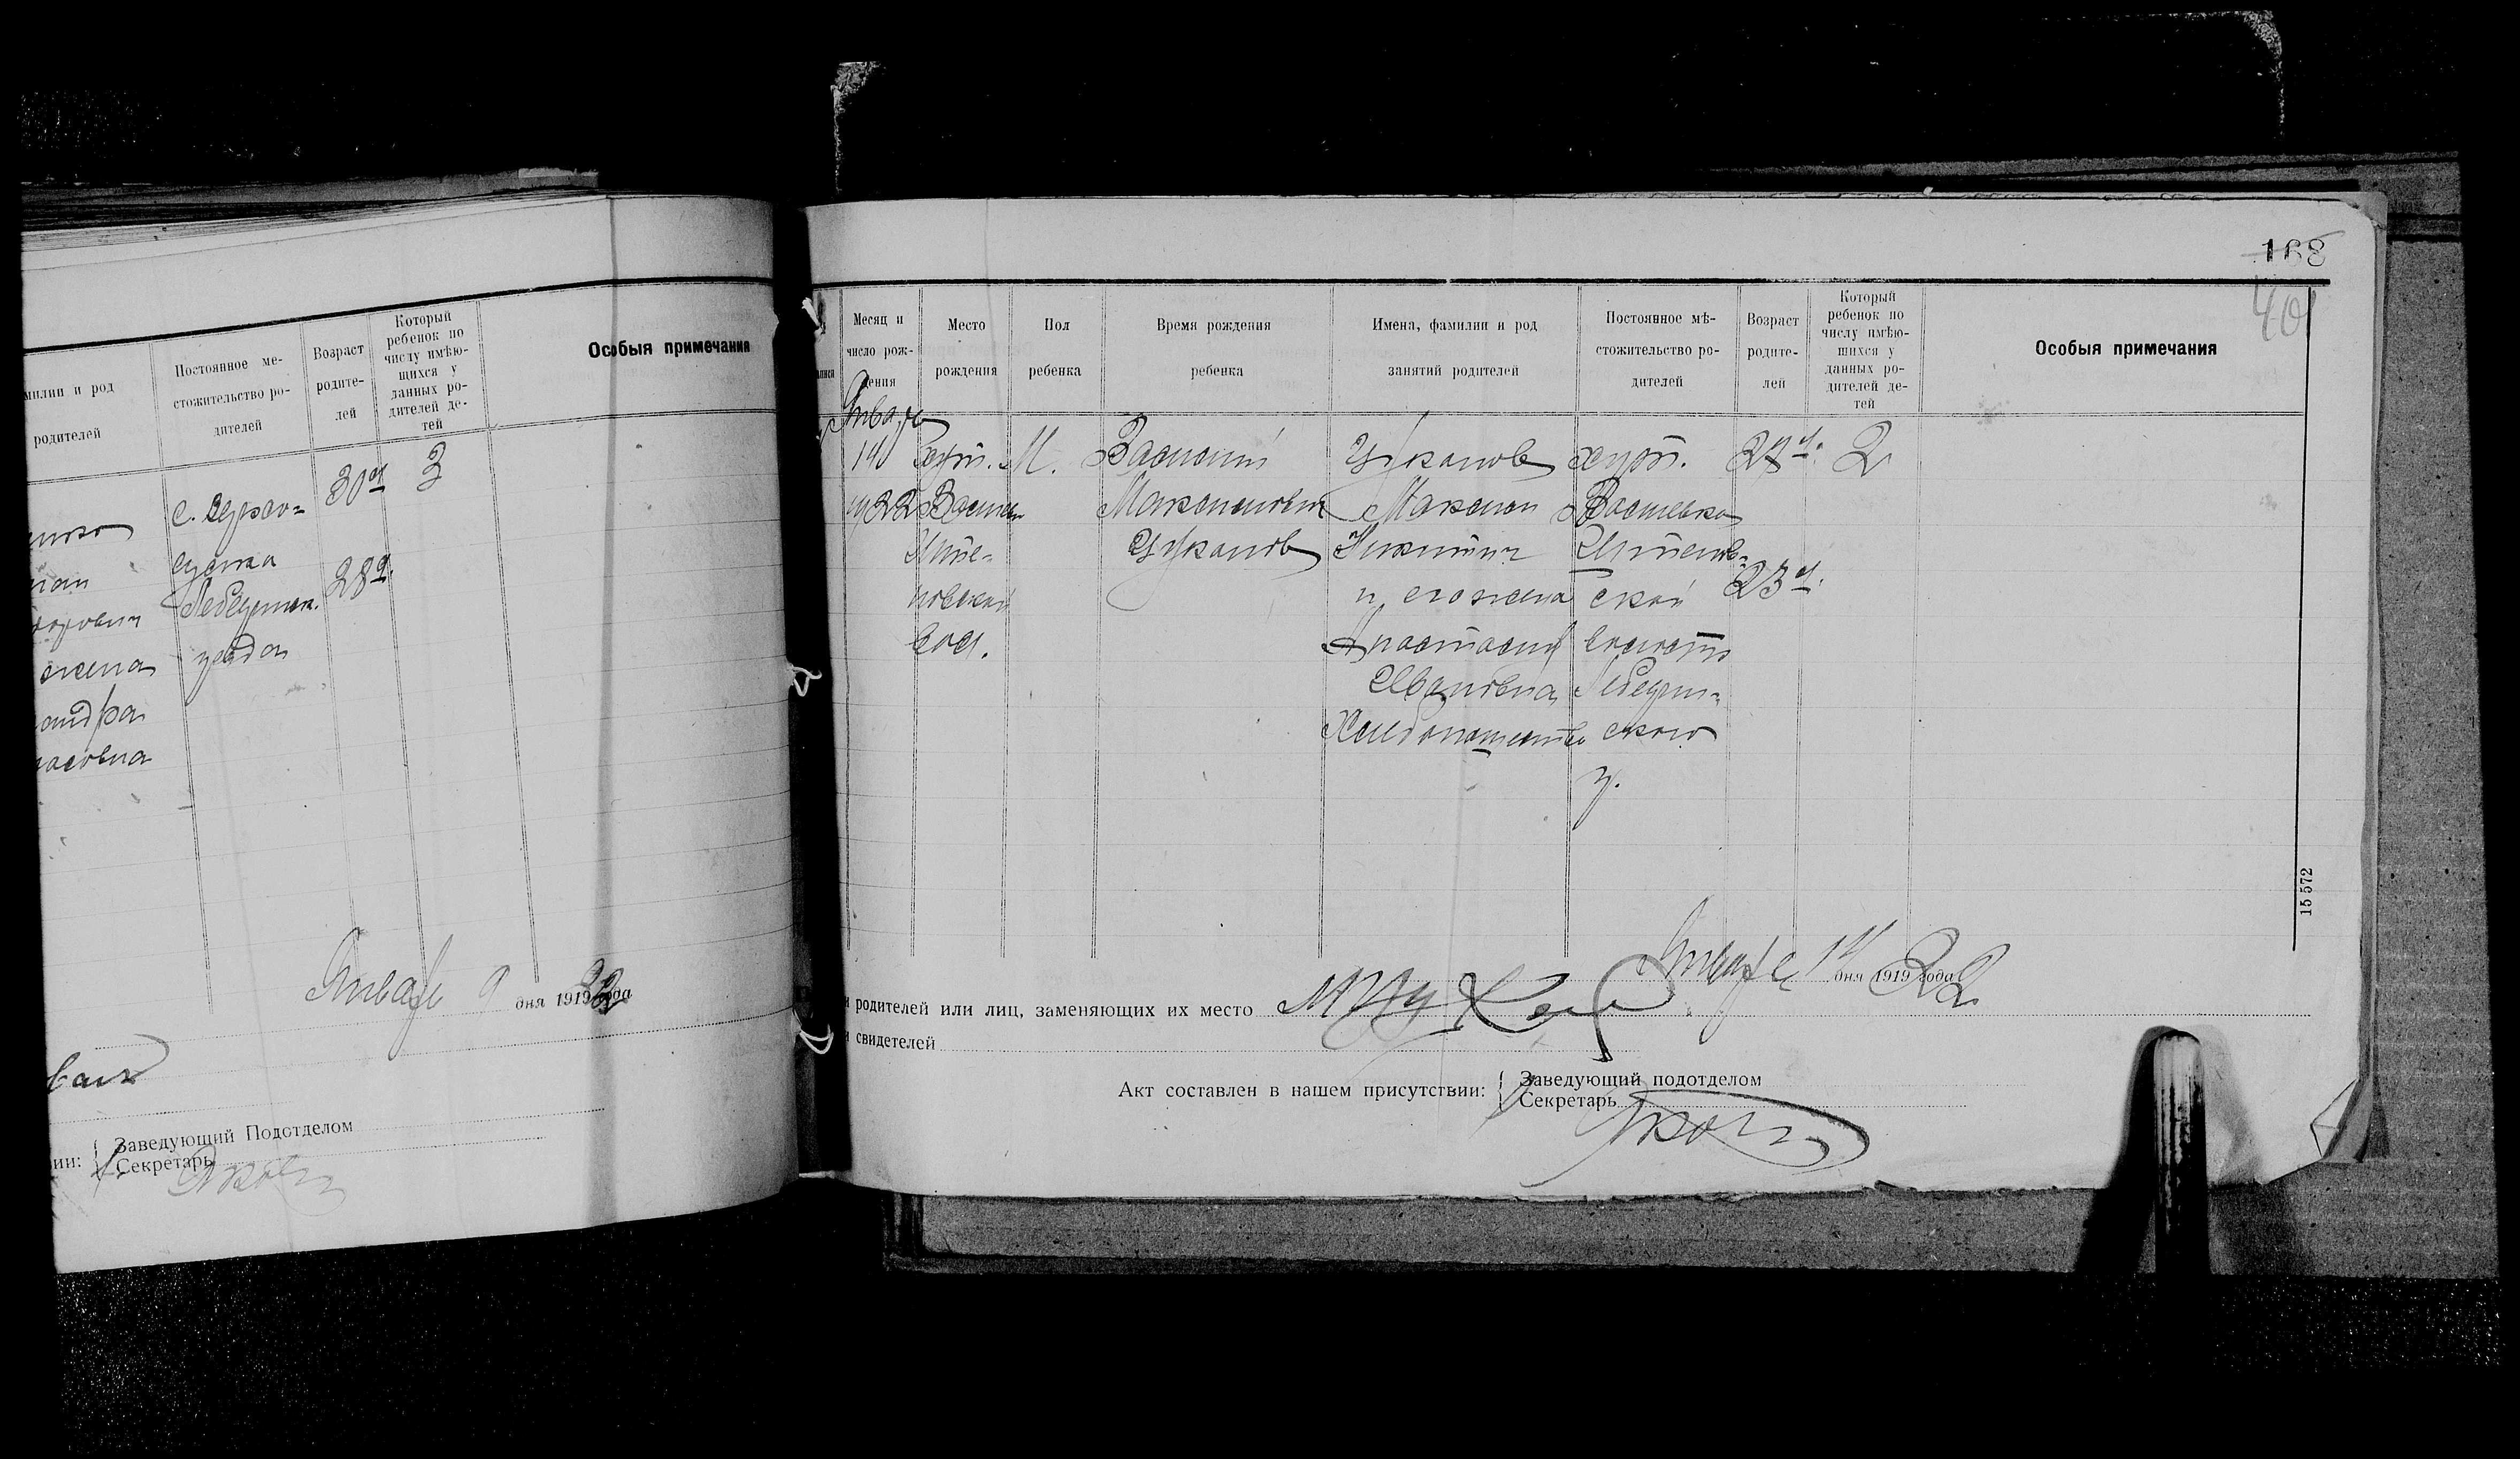 милии и род
родителей
Постоянное ме-
стожительство ро-
дителей
Возраст
родите-
лей
Который
ребенок по
числу имѣю-
щихся у
данных ро-
дителей де-
тей
Особыя примечания
с.
Лебединск.
уезда
30 л
28 л.
3
жена
андра
Января 9 дня 1919 года 22
Заведующий Подотделом
ии: Секретарь
168
40
Месяц и
число рож-
дения
Место
рождения
Пол
ребенка
Время рождения
ребенка
Имена, фамилии и род
занятий родителей
Постоянное мѣ-
стожительство ро-
дителей
Возраст
родите-
лей
Который
ребенок по
числу имѣю-
шихся у
данных ро-
дителей де-
тей
Особыя примечания
Январь
14
1922
Хут.
Штеповской
вол.
М.
Василий
Максимович
Цуканов
Цуканов
Максим
Никитич
и его жена
Анастасия
Ивановна
Хлебопашество
хут.
Штепов-
ской
волости
Лебедин-
ского
у.
27 л.
23 л.
2
15 572
Января 14 дня 1919 года 22
и родителей или лиц, заменяющих их место
и свидетелей
Акт составлен в нашем присутствии:
Заведующий подотделом
Секретарь